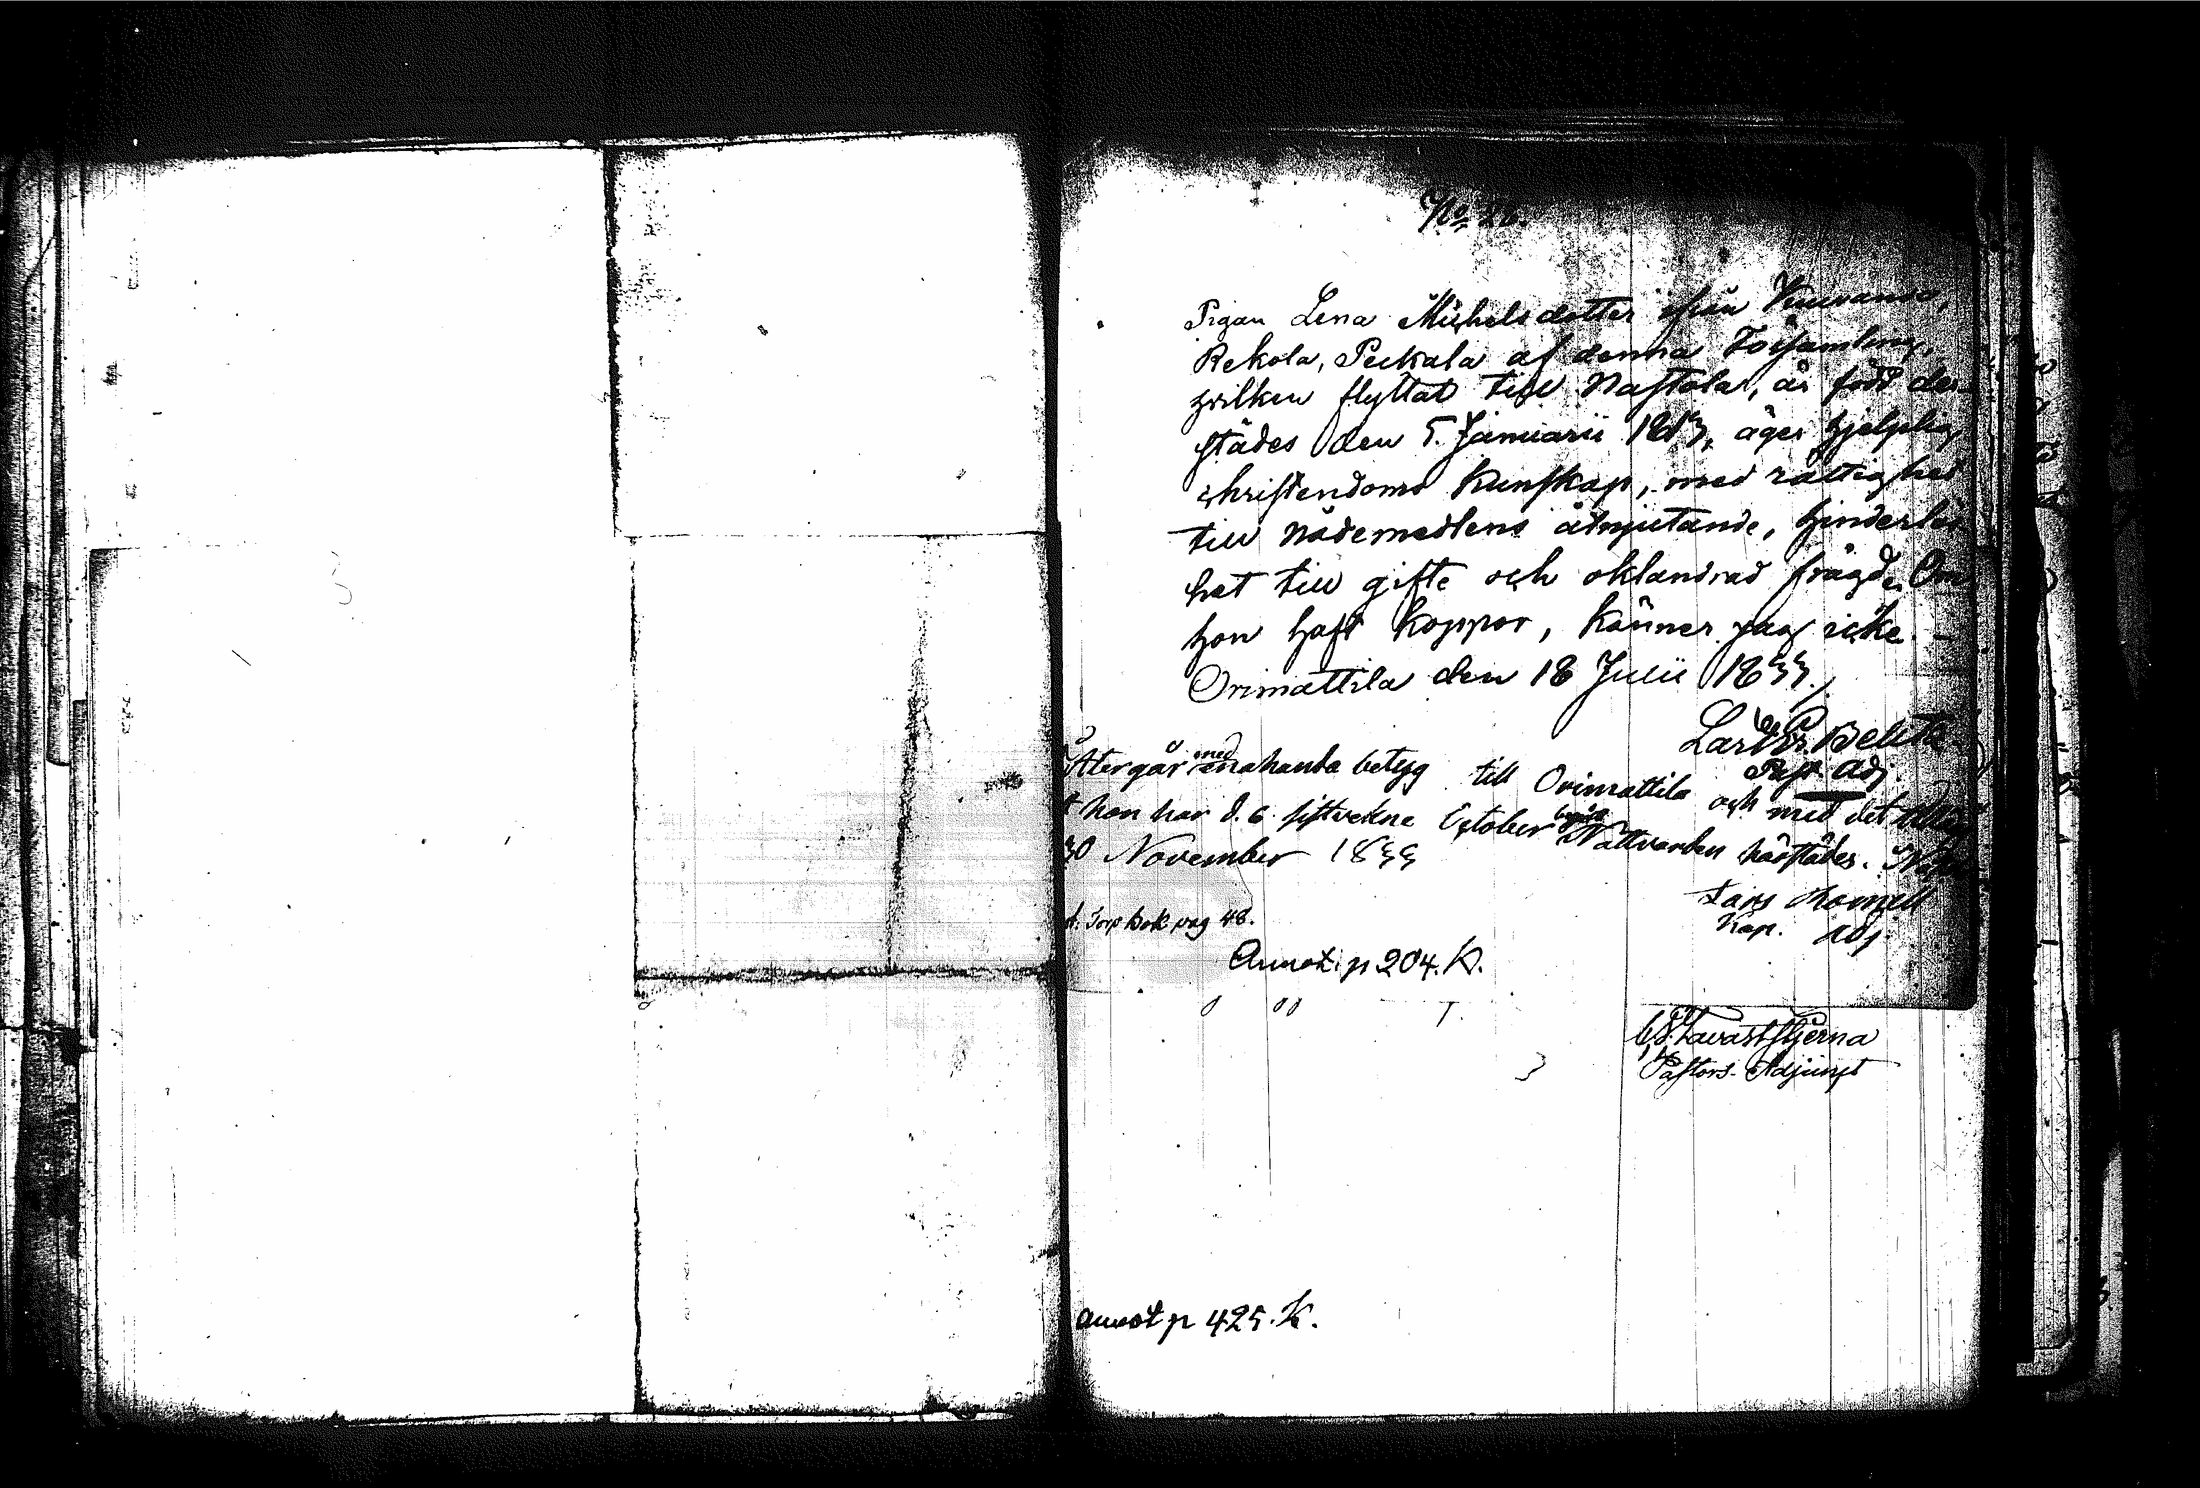 No 26.
Pigan Lena Michelsdotter ifrån
Rekola, Peckala af denna Församling,
hvilken flyttat till Nastola, är född der
städes den 5. Januarii äger hjelplig
christendoms kunskap, med rättighet
till nådemedlens åtnjutande, hinderlös
het till gifte och oklandrad frägd. Om
hon haft koppor, känner jag icke. -
Orimattila den 18 Julii 1855.
Past. adj.
Återgår med enahanda betyg till Orimattila och med det
t hon har d. 6 sistvekne October begått Nattvarden härstädes.
30 November 1855
Lars
Kap. adj.
pag 48.
Annot. p 204. K.
Tavaststjerna
Pastors-Adjunct
annot p 425. K.